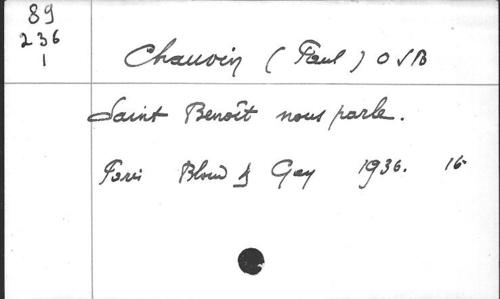 89
236
1
Chauvin (Paul) OSB
Saint Benoît nous parle.
Paris Bloud & Gay 1936. 16°